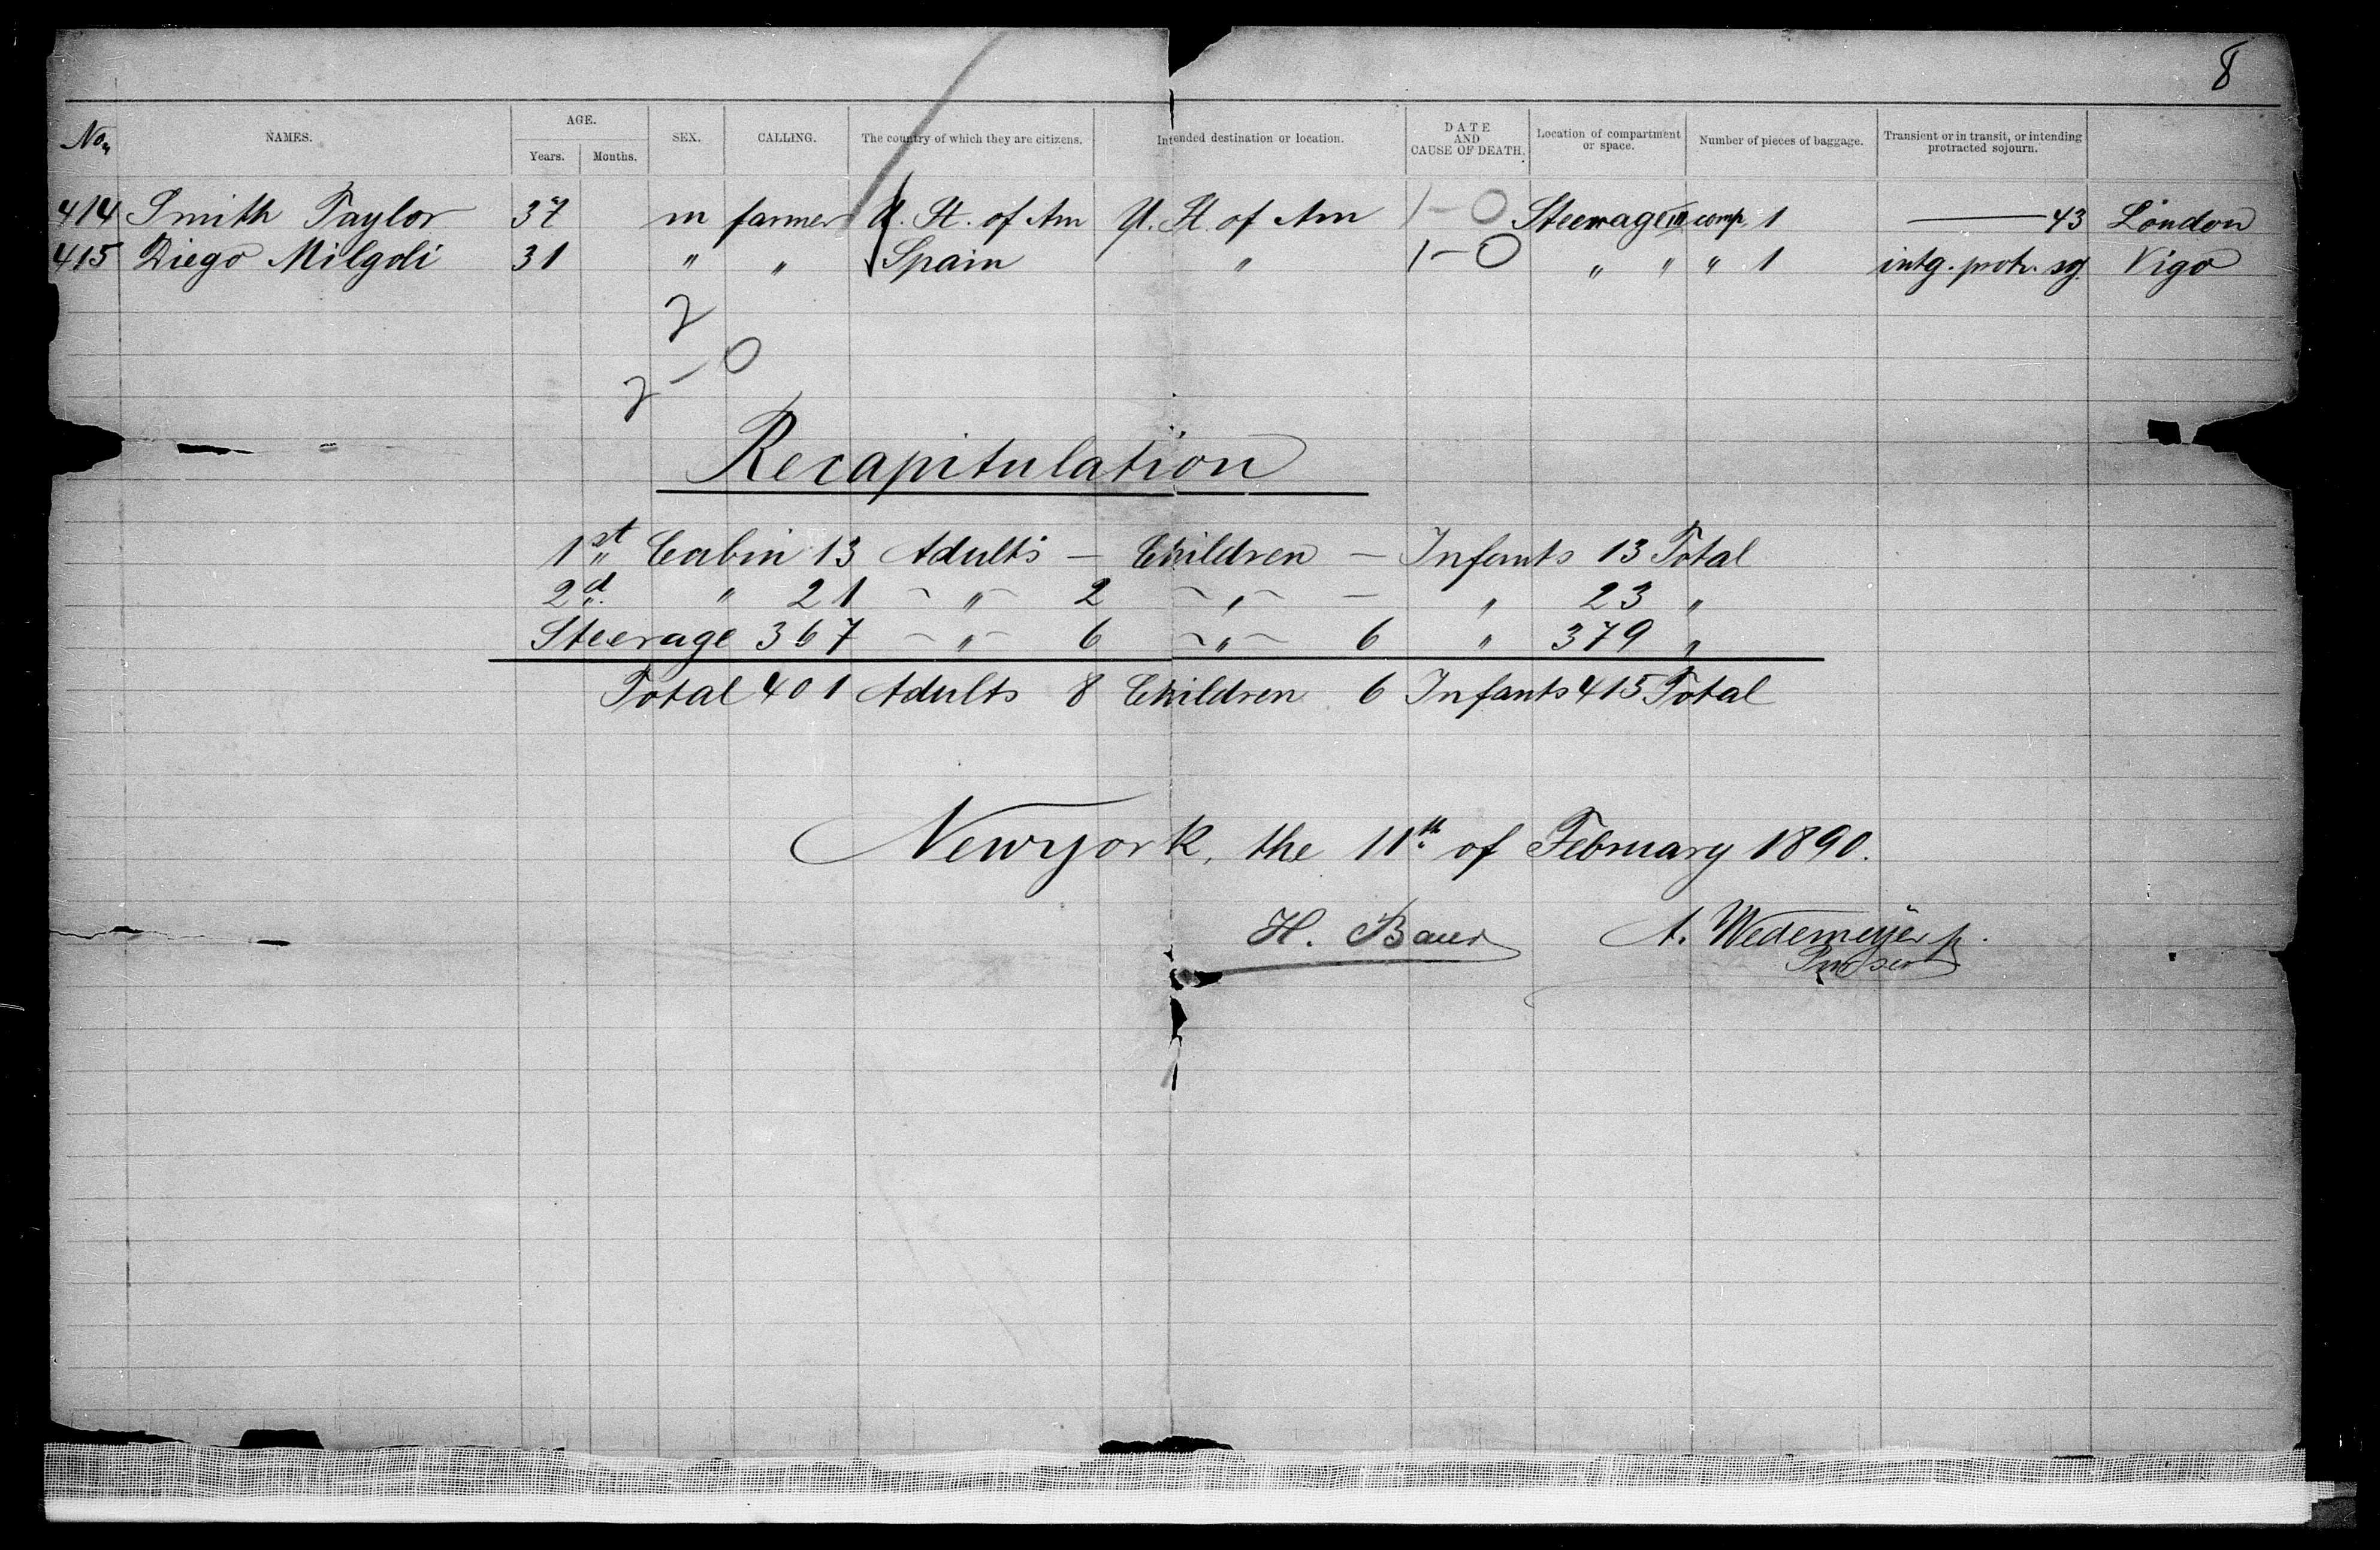 8
No. NAMES. AGE. Years. Months. SEX. CALLING. The country of which they are citizens. Intended destination or location. DATE AND CAUSE OF DEATH. Location of compartment or space. Number of pieces of baggage. Transient or in transit, or intending protracted sojourn.
414 Smith Taylor 37 m farmer U. St. of Am U. St. of Am 1-0 Steerage III comp. 1 — 43 London
415 Diego Milgoli 31 " " Spain " 1-0 " " " 1 intg. protr. sg. Vigo
2
2-0
Recapitulation
1st Cabin 13 Adults — Children — Infants 13 Total
2d " 21 " 2 " — " 23 "
Steerage 367 " 6 " 6 " 379 "
Total 401 Adults 8 Children 6 Infants 415 Total
Newyork, the 11th of February 1890.
H. Baur A. Wedemeyer
Purser